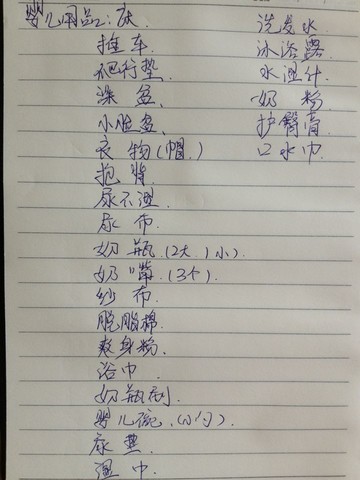 婴儿用品：床
推车
爬行垫
澡盆
小脸盆
衣物（帽）
抱背
尿不湿
尿布
奶瓶（2大1小）
奶嘴（3个）
纱布
脱脂棉
爽身粉
浴巾
奶瓶刷
婴儿碗（小勺）
尿垫
湿巾
洗发水
沐浴露
水温计
奶粉
护臀膏
口水巾